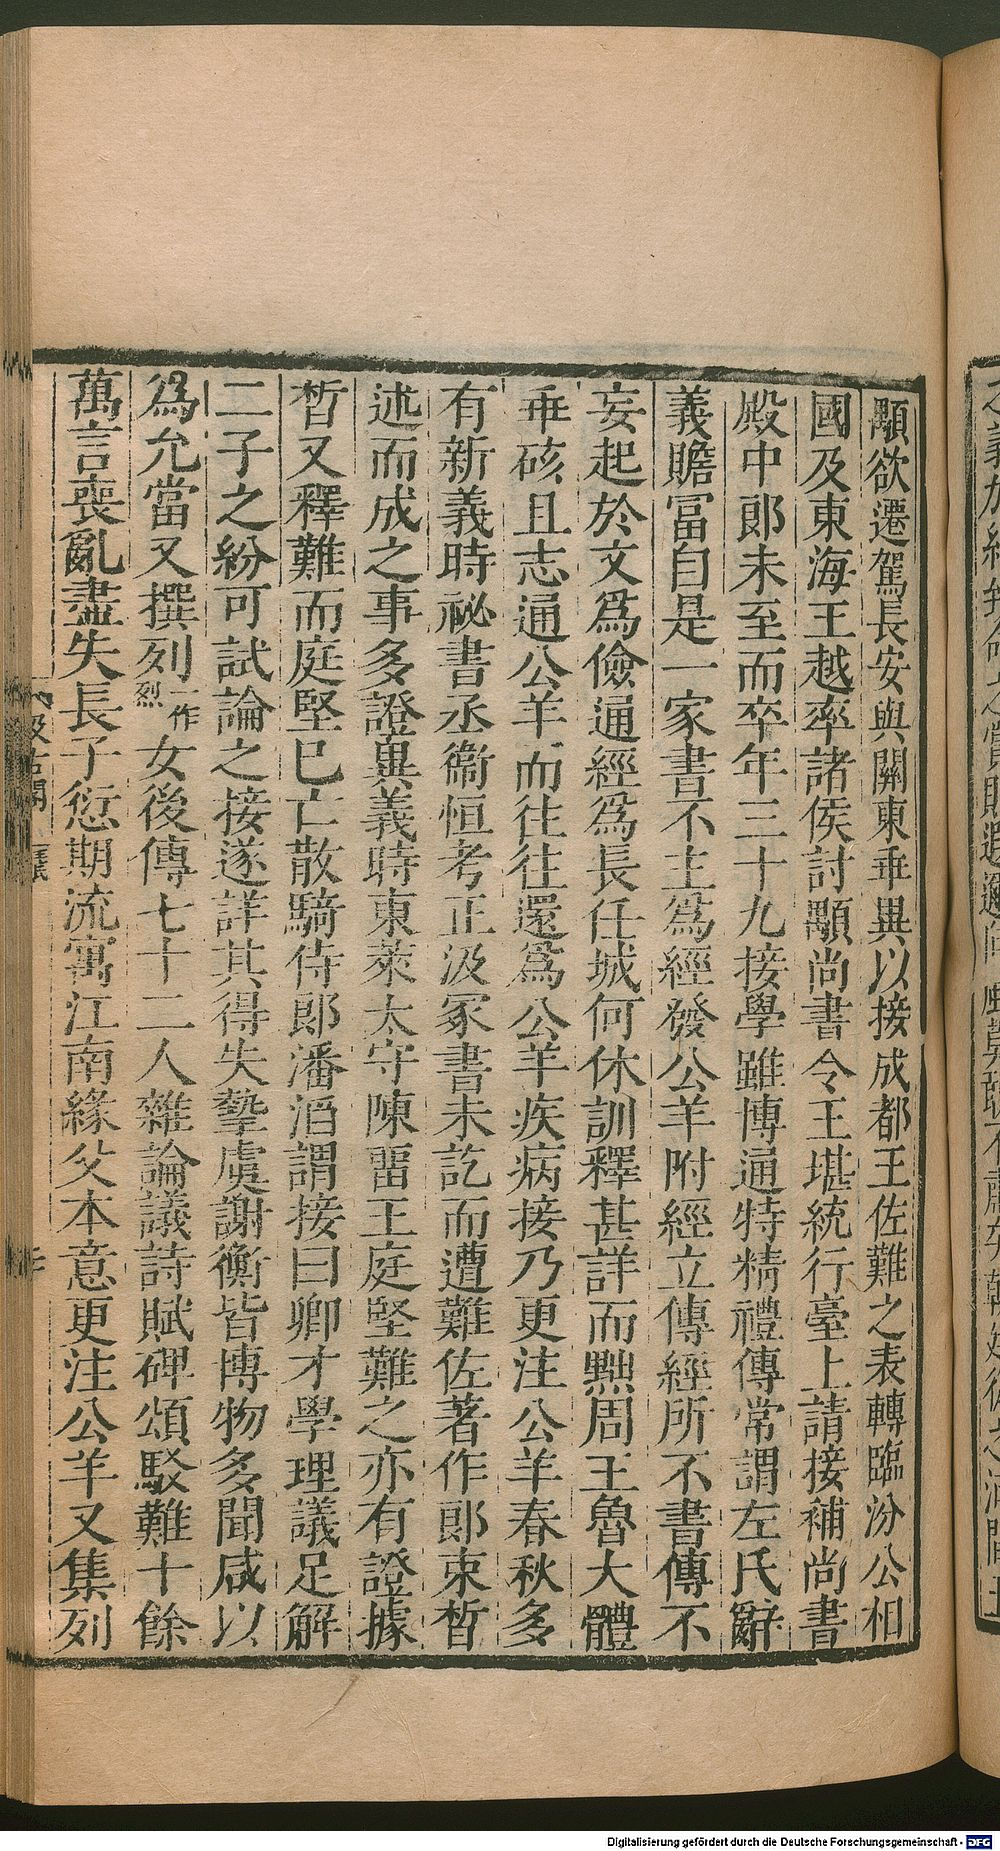 顒欲遷駕長安與關東乖異以接成都王佐難之表轉臨汾公相
國及東海王越率諸侯討顒尚書令王堪統行臺上請接補尚書
殿中郎未至而卒年三十九接學雖博通特精禮傳常謂左氏辭
義贍富自是一家書不主為經發公羊附經立傳經所不書傳不
妄起於文為儉通經為長任城何休訓釋甚詳而黜周王魯大體
乖硋且志通公羊而往往還為公羊疾病接乃更注公羊春秋多
有新義時祕書丞衞恒考正汲冢書未訖而遭難佐著作郎束晳
述而成之事多證異義時東萊太守陳留王庭堅難之亦有證據
晳又釋難而庭堅已亡散騎侍郎潘滔謂接曰卿才學理議足解
二子之紛可試論之接遂詳其得失摯虞謝衡皆博物多聞咸以
為允當又撰列一作烈女後傳七十二人雜論議詩賦碑頌駁難十餘
萬言喪亂盡失長子愆期流寓江南緣父本意更注公羊又集列
Digitalisierung gefördert durch die Deutsche Forschungsgemeinschaft - DFG